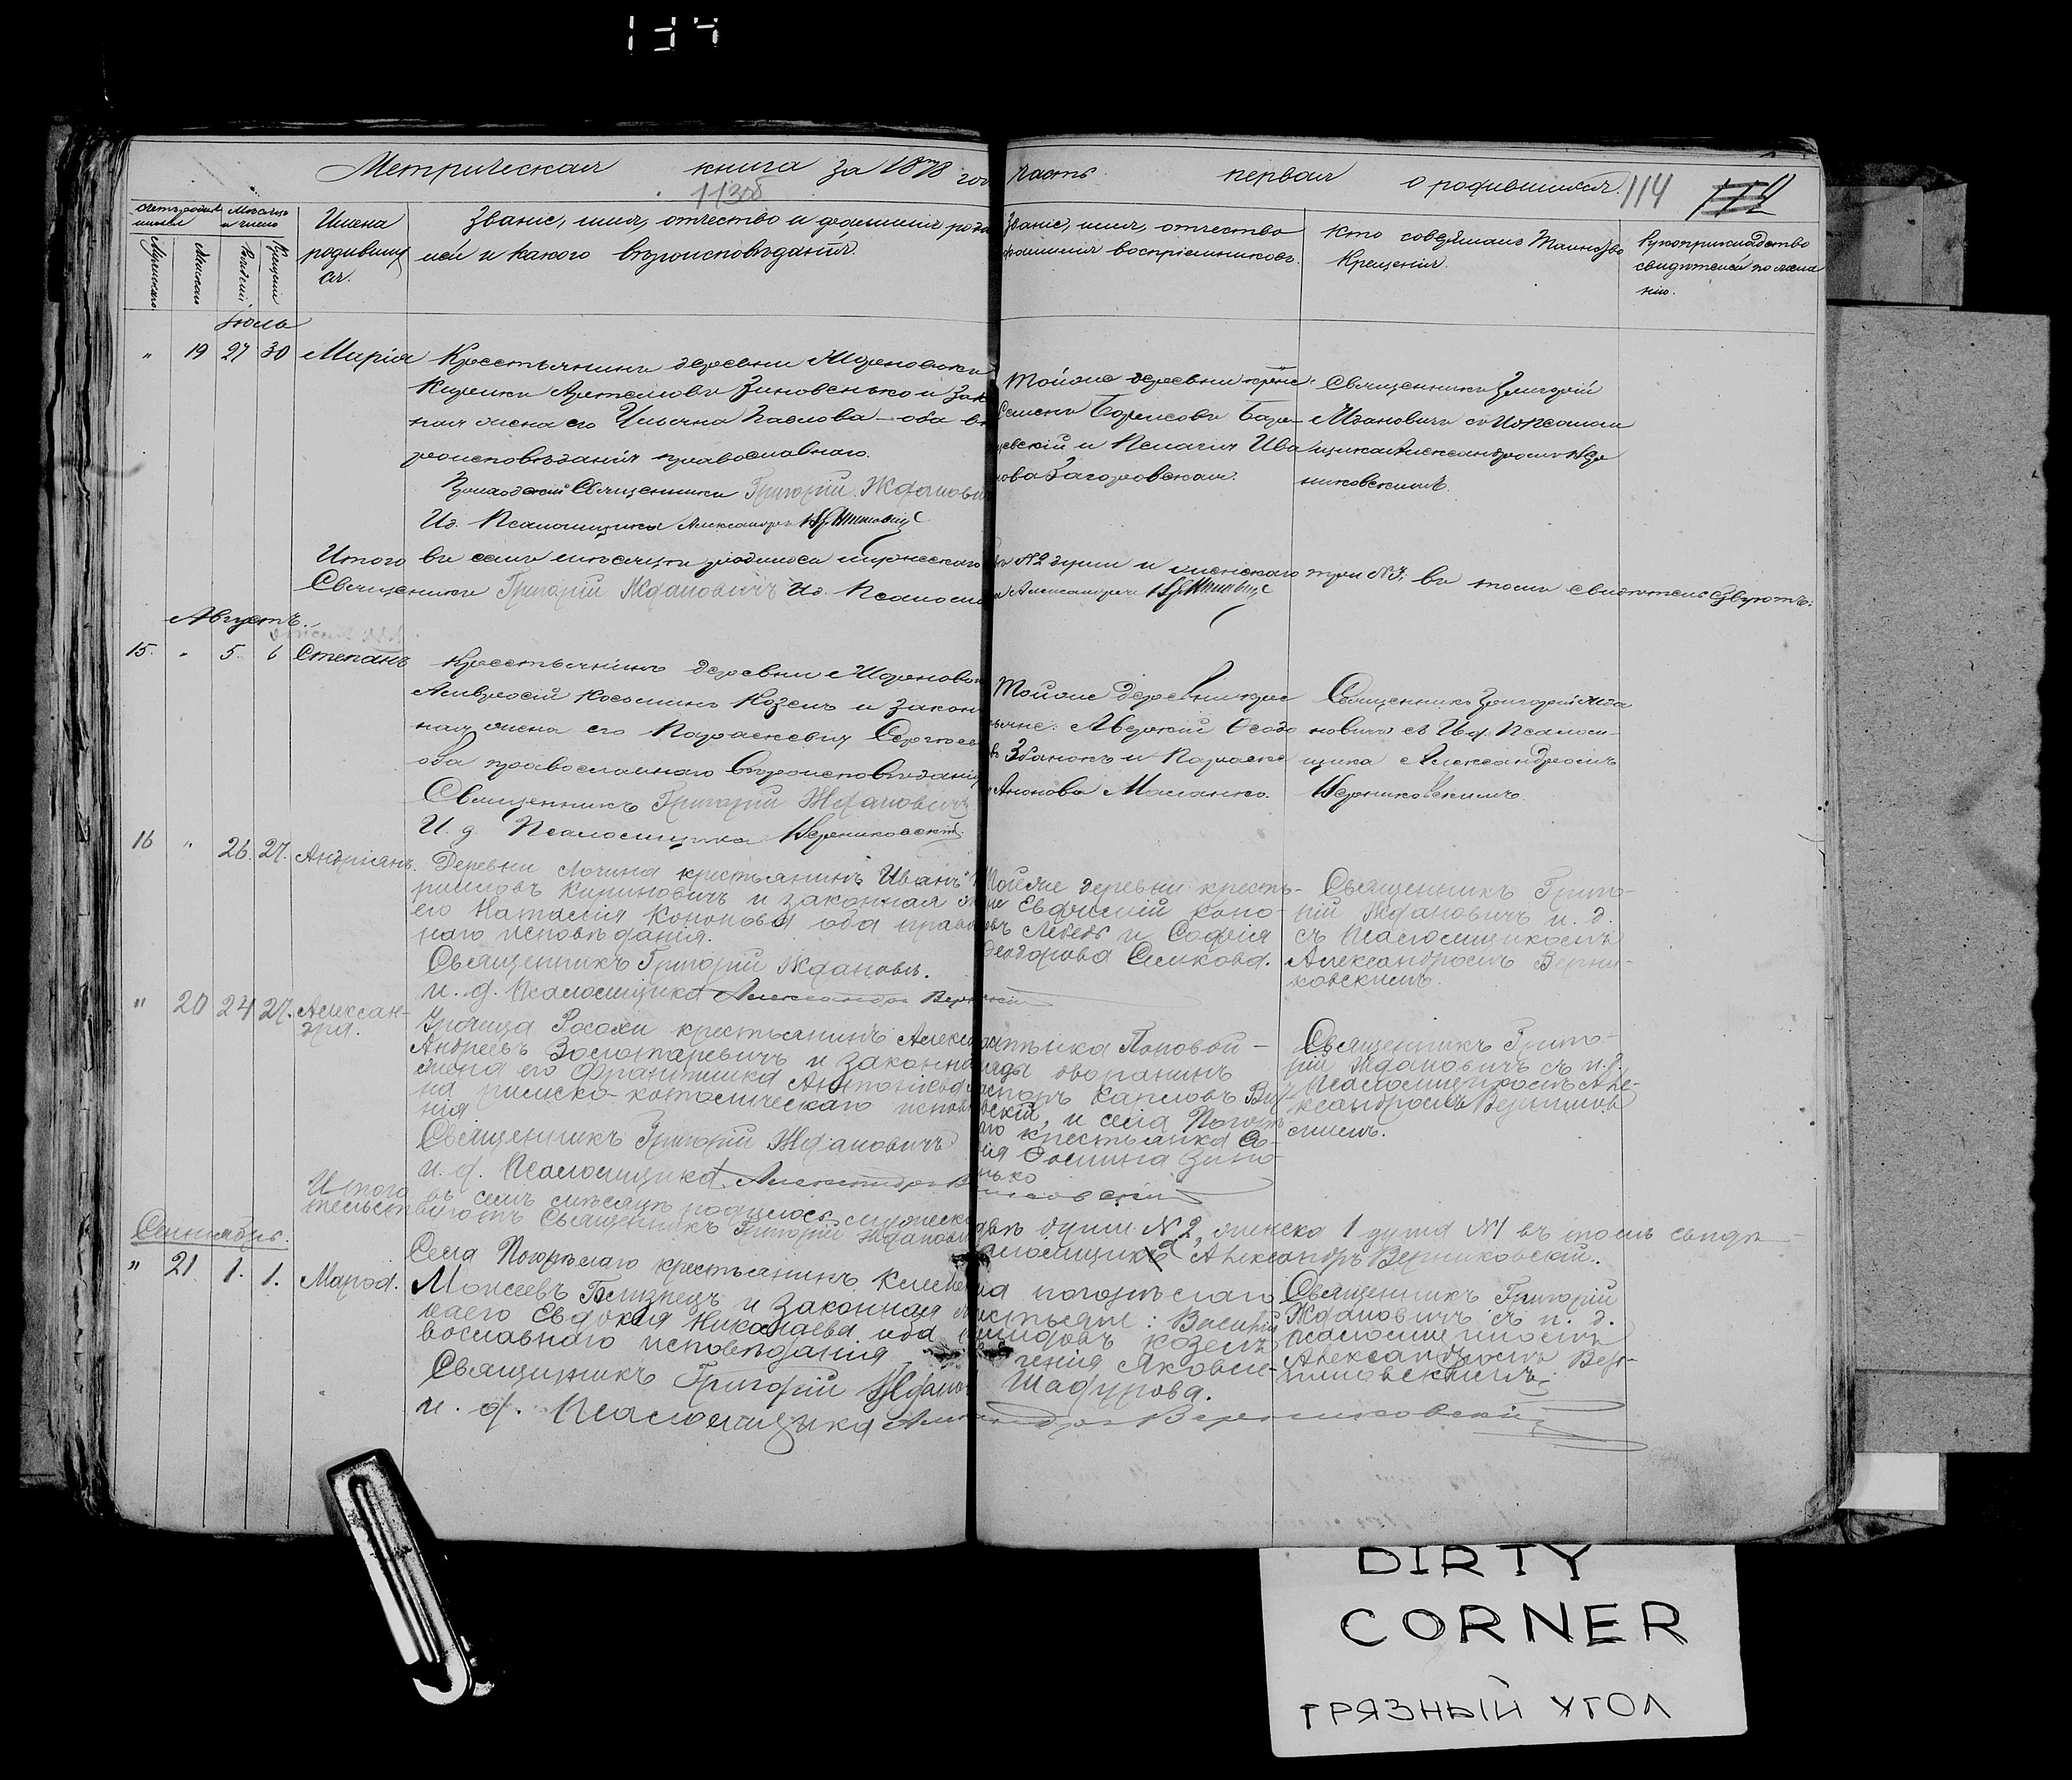 134
Метрическая книга за 1878 год
часть первая о родившихся.
113об
114
Счетъ родив
шихся
Мѣсяцъ
и число
Мужескаго
Женскаго
Рожденія
Крещенія
Имена
родивших
ся.
Званіе, имя, отчество и фамилія роди
лей и какого вѣроисповѣданія.
Званіе, имя, отчество
фамилія воспріемниковъ.
Кто совершалъ Таинство
Крещенія.
Рукоприкладство
свидѣтелей по жела
нію.
Іюль
" 19 27 30 Марія
Крестьянинъ деревни
Артемовъ Зиновенько и зак
ная жена его Павлова оба въ
роисповѣданія православнаго.
Священникъ Григорій Жданови
И.д. Псаломщика Александръ
Тойже деревни крес
Семенъ Борисовъ
и Пелагія Ива
нова Загоровская.
Священникъ Григорій
Ждановичъ съ И.д. Псалом
щика Александромъ Вер
никовскимъ.
Итого въ семъ мѣсяцѣ родилось мужескаго
№2 души и женскаго три №3, въ томъ свидѣтельствуютъ:
Священникъ Григорій Ждановичъ И.д. Псалом
Александръ
Августъ.
15. " 5. 6 Степанъ
Крестьянинъ деревни
Амвросій Косминъ Козелъ и закон
ная жена его Параскевія Сергѣе
оба православнаго вѣроисповѣданія
Священникъ Григорій Жданович
И. д. Псаломщика Верниковскій
Тойже деревни крес
тьяне: Авдокій Ѳеодо
въ и Параске
Малашко.
Священникъ Григорій Жда
новичъ съ И.д. Псалом
щика Александромъ
Верниковскимъ
16 " 26. 27. Андріянъ.
Деревни крестьянинъ Иванъ
Калиновичъ и законная
его Наталія Кононова оба право
наго исповѣданія.
Священникъ Григорій Жданови.
и. д. Псаломщика Александръ Верн
Тойже деревни кресть-
не Евфимій Коно-
въ Лебедь и Софія
Ѳеодорова
Священникъ Григо-
рій Ждановичъ и. д.
съ Псаломщикомъ
Александромъ Верни-
ковскимъ.
" 20 24 27. Алексан-
дра.
Урочища Рохи крестьянинъ Алекс
Андреевъ Золотаревичъ и законна
жена его Франтишка Антоніева
на римско-католическаго исповѣ
нія
Священникъ Григорій Ждановичъ
и. д. Псаломщика Александръ
Поповой-
дворянинъ
Карловъ
и села Погорѣ
крестьянка Со-
Ѳомина Зино-
нько
Священникъ Григо-
рій Ждановичъ съ и.д.
Псаломщикомъ Але-
ксандромъ Верников
скимъ.
Итого въ семъ мѣсяцѣ родилось мужеска
двѣ души №2, женска 1 душа №1 въ томъ свидѣ
тельствуютъ Священникъ Григорій Жданови
псаломщика Александръ Верниковскій.
Сентябрь.
" 21 1. 1. Марѳа.
Села Погорѣлаго крестьянинъ Климен
Моисеевъ Близнецъ и законная
наего Евдокія Николаева оба
вославнаго исповѣданія
Священникъ Григорій Ждан
и. д. Псаломщика Александръ Верниковскій
ла погорѣлаго
естьяне: Василій
Козелъ
генія Яковле-
Шафурова.
Священникъ Григорій
Ждановичъ съ и. д.
псаломщикомъ
Александромъ Вер-
никовскимъ.
DIRTY
CORNER
ГРЯЗНЫЙ УГОЛ